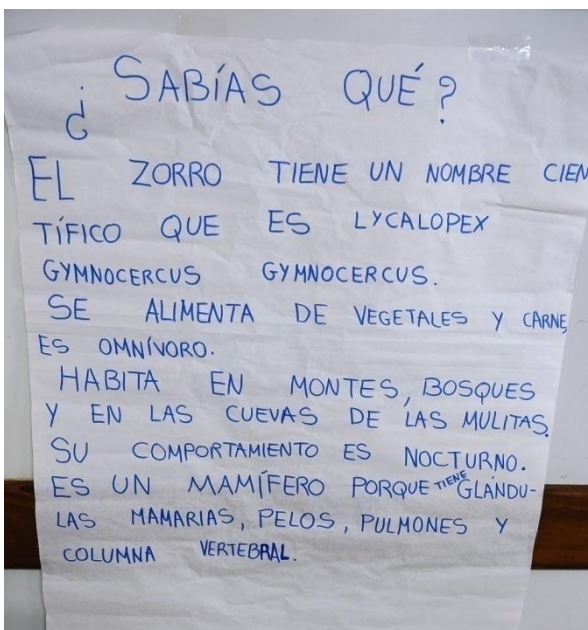 ¿ SABÍAS QUÉ?
EL ZORRO TIENE UN NOMBRE CIEN
TÍFICO QUE ES LYCALOPEX
GYMNOCERCUS GYMNOCERCUS.
SE ALIMENTA DE VEGETALES Y CARNE,
ES OMNÍVORO.
HABITA EN MONTES, BOSQUES
Y EN LAS CUEVAS DE LAS MULITAS.
SU COMPORTAMIENTO ES NOCTURNO.
ES UN MAMÍFERO PORQUE TIENE GLÁNDU-
LAS MAMARIAS, PELOS, PULMONES Y
COLUMNA VERTEBRAL.